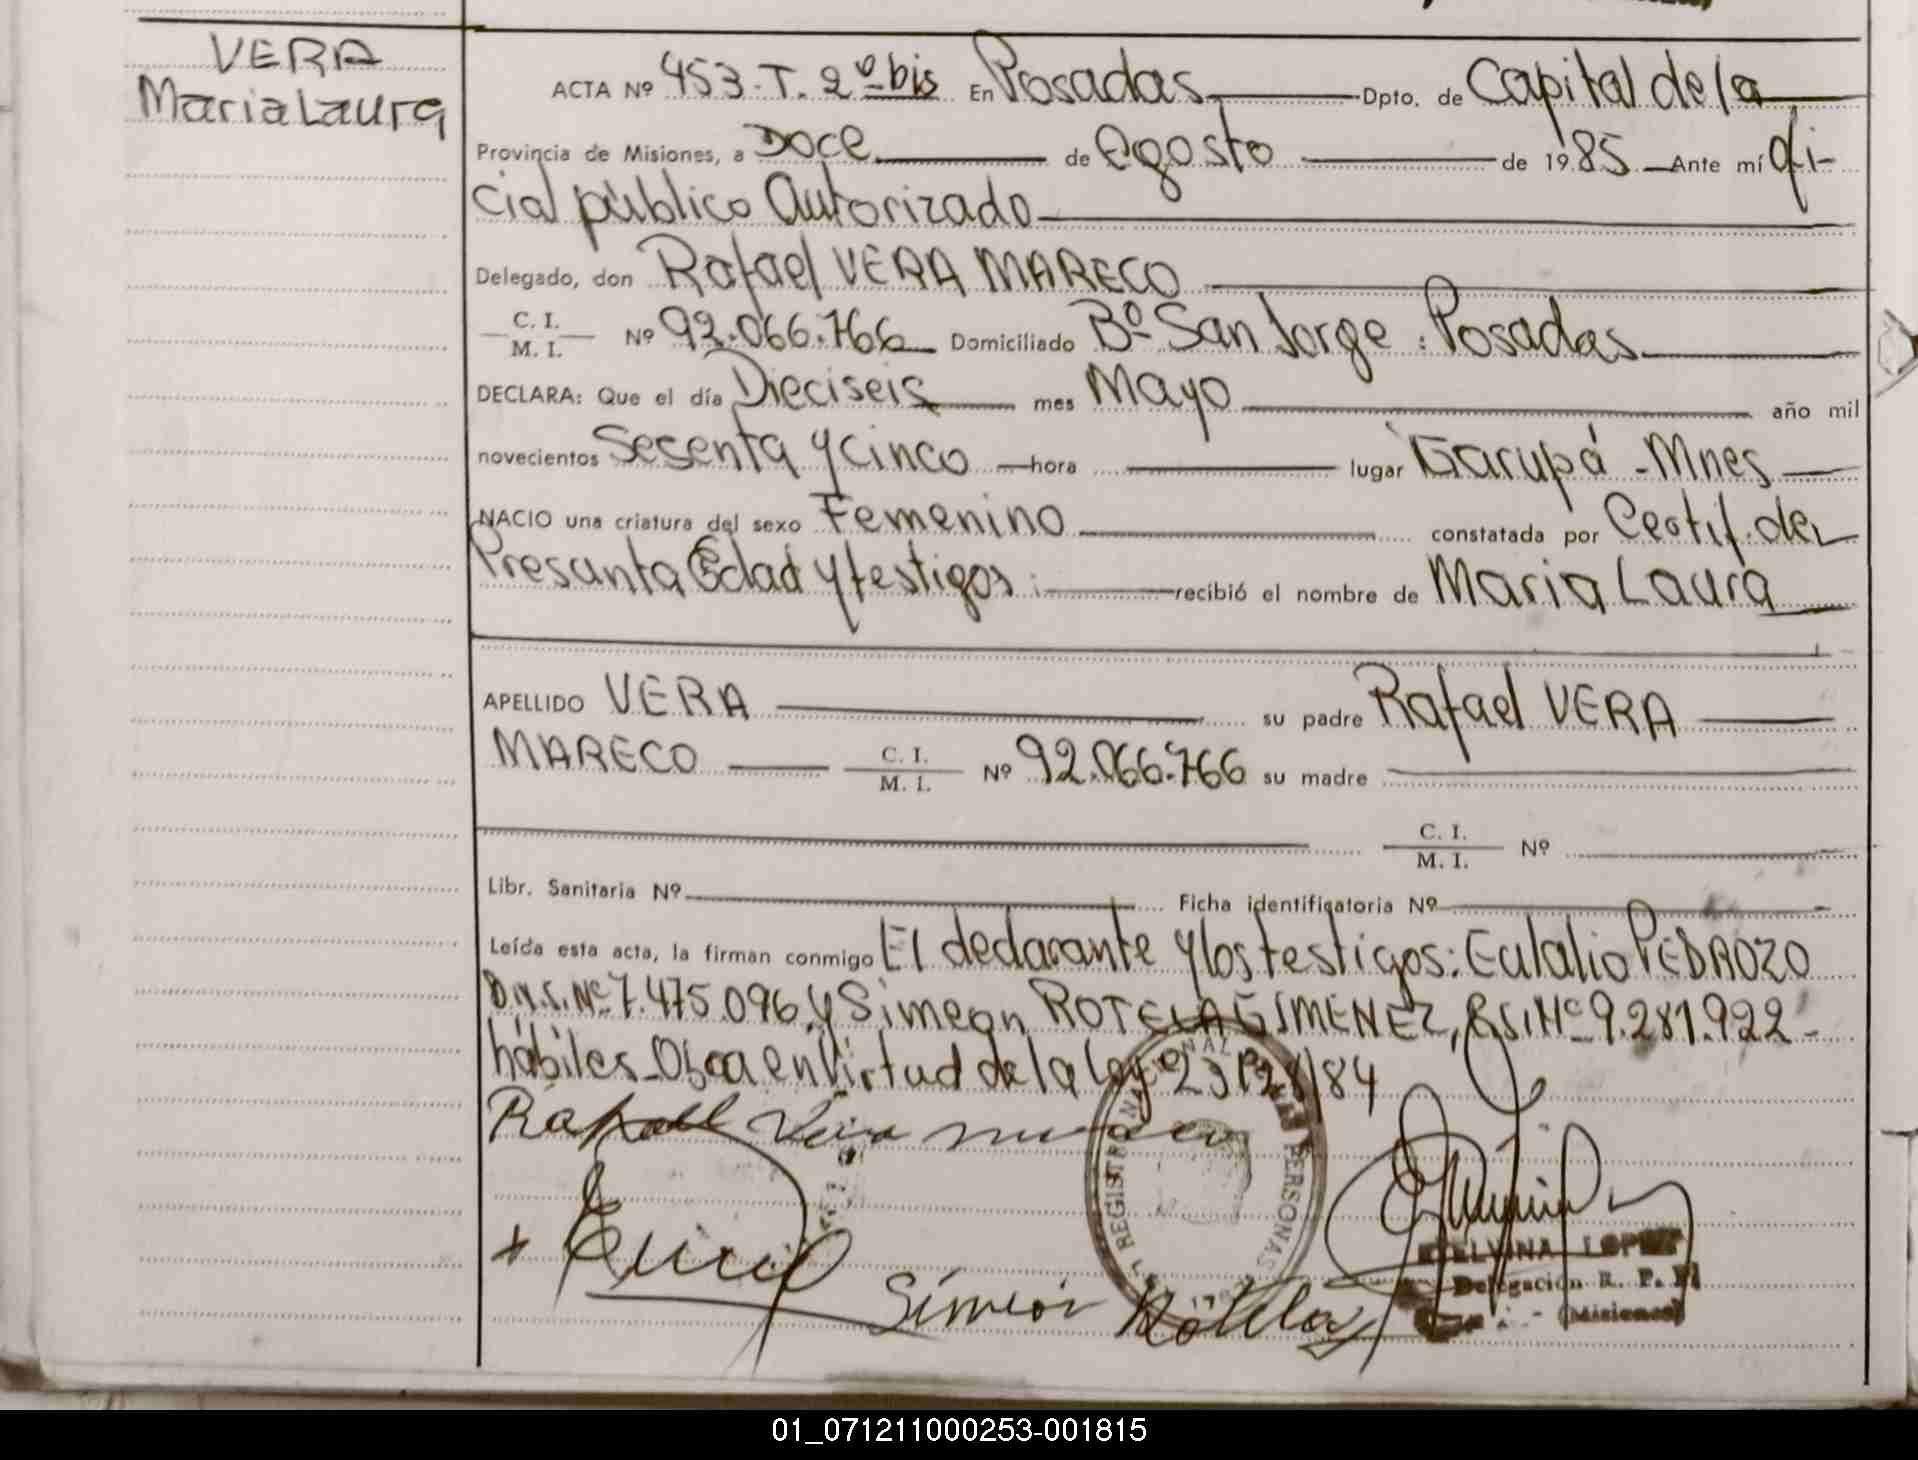 VERA
Maria Laura
ACTA Nº 453-T. 2º bis En Posadas Dpto. de Capital de la
Provincia de Misiones, a Doce de Agosto de 1985 Ante mí ofi-
cial público Autorizado
Delegado, don Rafael VERA MARECO
C. I.
M. I. Nº 92.066.766 Domiciliado Bº San Jorge. Posadas
DECLARA: Que el día Dieciseis mes Mayo año mil
novecientos Sesenta y cinco hora lugar Garupá - Mnes
NACIO una criatura del sexo Femenino constatada por Certif. de
Presunta Edad y testigos: recibió el nombre de Maria Laura
APELLIDO VERA su padre Rafael VERA
MARECO C. I.
M. I. Nº 92.066.766 su madre
C. I.
M. I. Nº
Libr. Sanitaria Nº Ficha identificatoria Nº
Leída esta acta, la firman conmigo El declarante y los testigos: Eulalio PEDROZO
D.N.I. Nº 7.475.096 y Simeon ROTELA GIMENEZ, Nº 9.281.922-
hábiles- Obra en Virtud de la Ley 84
Rafael Vera
Simeon Rotela
REGISTRO NACIONAL PERSONAS
ELVINA LOPEZ
Delegación R. P.
(Misiones)
01_071211000253-001815